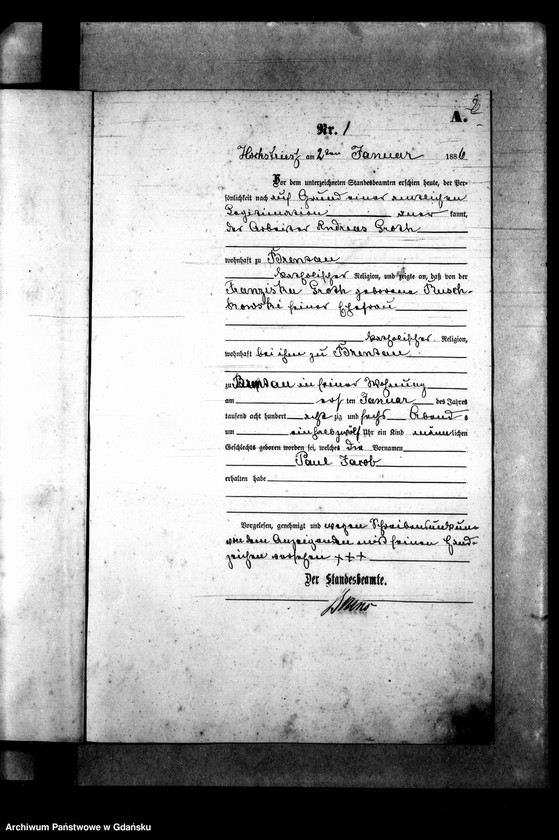 2
A.
Nr. 1
Hochstrieß am 2ten Januar 1886
Vor dem unterzeichneten Standesbeamten erschien heute, der Per-
sönlichkeit nach auf Grund einer amtlichen
Legitimation aner kannt,
der Arbeiter Andreas Groth
wohnhaft zu Brentau
katholischer Religion, und zeigte an, daß von der
Franziska Groth geborene
seiner Ehefrau
katholischer Religion,
wohnhaft bei ihm zu Brentau
zu Brentau in seiner Wohnung
am ersten Januar des Jahres
tausend acht hundert acht zig und sechs Abends
um einhalbzwölf Uhr ein Kind männlichen
Geschlechts geboren worden sei, welches die Vornamen
Paul Jacob
erhalten habe
Vorgelesen, genehmigt und wegen Schreibensunkunde
von dem Anzeigenden mit seinem Hand-
zeichen versehen +++
Der Standesbeamte.
Archiwum Państwowe w Gdańsku